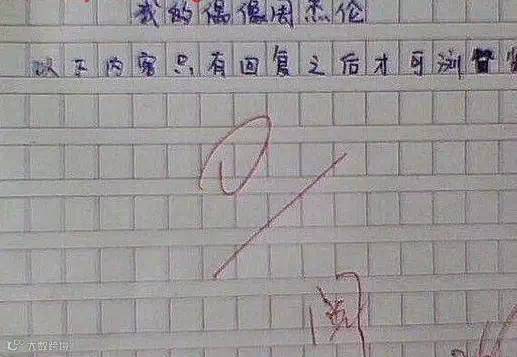 我的偶像周杰伦
以下内容只有回复之后才可浏览
阅
大数跨境